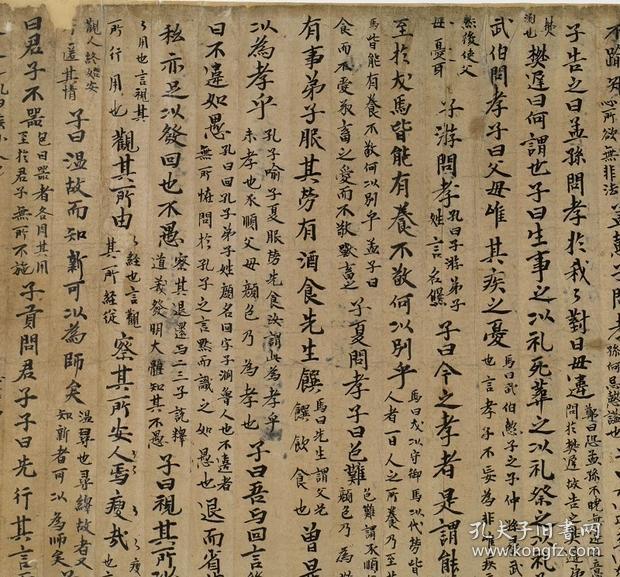 不踰矩 心所欲無非法
子告之曰孟孫問孝於我我對曰毋違
樊遲曰何謂也子曰生事之以礼死葬之以礼祭之以礼
武伯問孝子曰父母唯其疾之憂 馬曰武伯懿子之子仲
也言孝子不妄為非
然後使父
母憂耳 子游問孝 孔曰子游弟子
姓言名偃 子曰今之孝者是謂能
至於犬馬皆能有養不敬何以別乎
馬皆能有養不敬何以別乎孟子曰
食而不愛豕畜之愛而不敬獸畜之 子夏問孝子曰色難
有事弟子服其勞有酒食先生饌 馬曰先生謂父兄
饌飲食也 曾是
以為孝乎 孔子喻子夏服勞先食汝謂此為孝乎
未孝也承順父母顏色乃為孝也 子曰吾与回言
曰不違如愚 孔曰回孔子弟子姓顏名回字子淵魯人也不違者
無所恠問於孔子之言默而識之如愚也 退而省
私亦足以發回也不愚 察其退還与二三子說釋
道義發明大體知其不愚 子曰視其所以
以用也言視其
所行用也 觀其所由 由經也言觀
其所經從 察其所安人焉廋哉
觀人終始安
匿其情 子曰温故而知新可以為師矣 温尋也尋繹故者又
知新者可以為師矣
曰君子不器 包曰器者各周其用
至於君子無所不施 子貢問君子子曰先行其言
孔夫子旧书网
www.kongfz.com